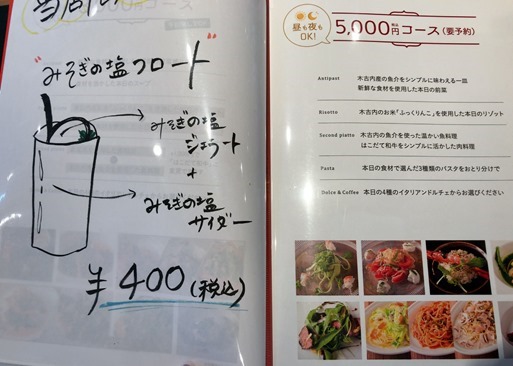 "みそぎの塩フロート"
みそぎの塩
ジェラート
+
みそぎの塩
サイダー
¥400(税込)
昼も夜も
OK!
5,000円税込コース(要予約)
Antipast 木古内産の魚介をシンプルに味わえる一皿
新鮮な食材を使用した本日の前菜
Risotto 木古内のお米「ふっくりんこ」を使用した本日のリゾット
Second piatto 木古内の魚介を使った温かい魚料理
はこだて和牛をシンプルに活かした肉料理
Pasta 本日の食材で選んだ3種類のパスタをおとり分けで
Dolce & Coffee 本日の4種のイタリアンドルチェからお選びください